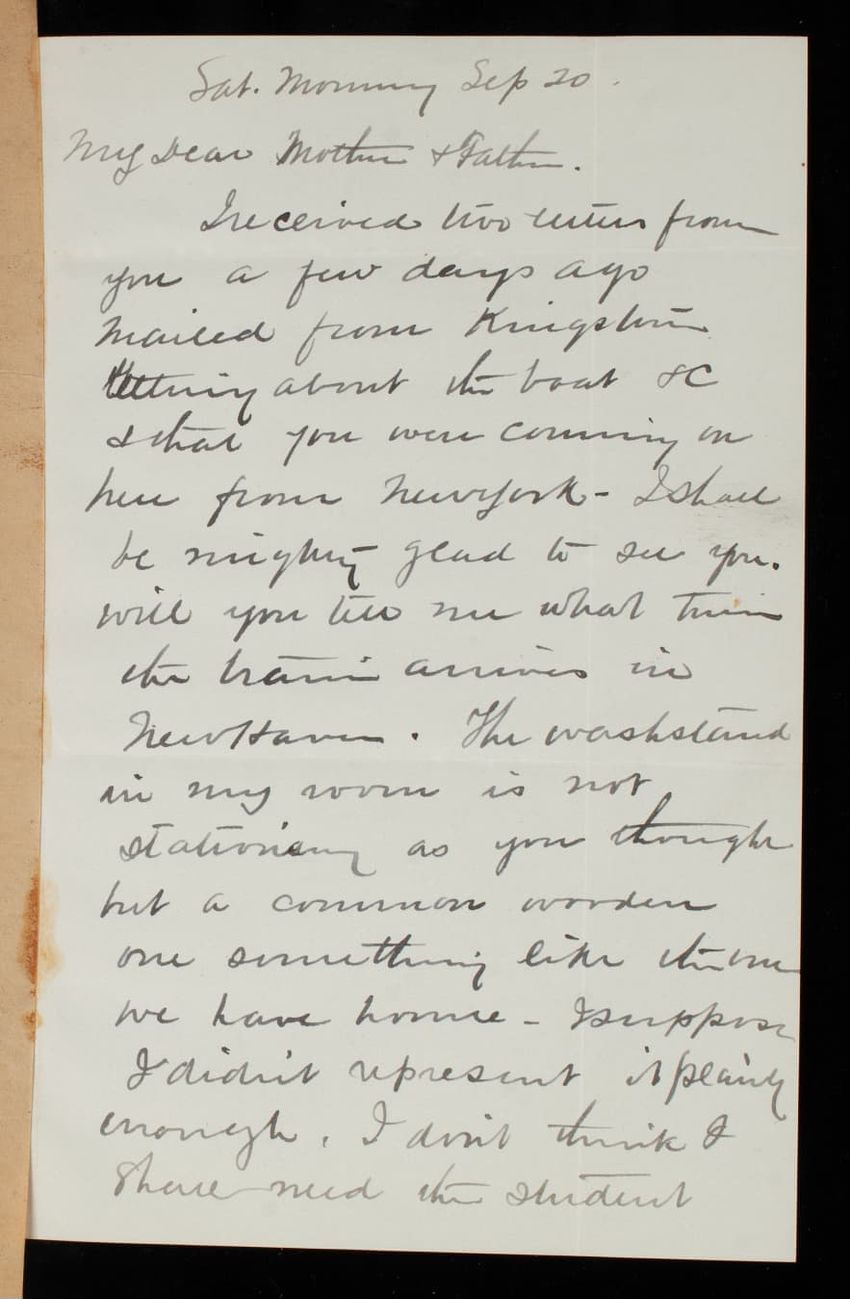 Sat. Morning Sep 20.
My Dear Mother & Father.
I received two letters from
you a few days ago
mailed from Kingston
telling about the boat &C
& that you were comming on
here from New York - I shall
be mighty glad to see you.
will you tell me what time
the train arrives in
New Haven. The washstand
in my room is not
stationary as you thought
but a common wooden
one something like the one
we have home - I suppose
I didn't represent it plainly
enough. I don't think I
shall need the student